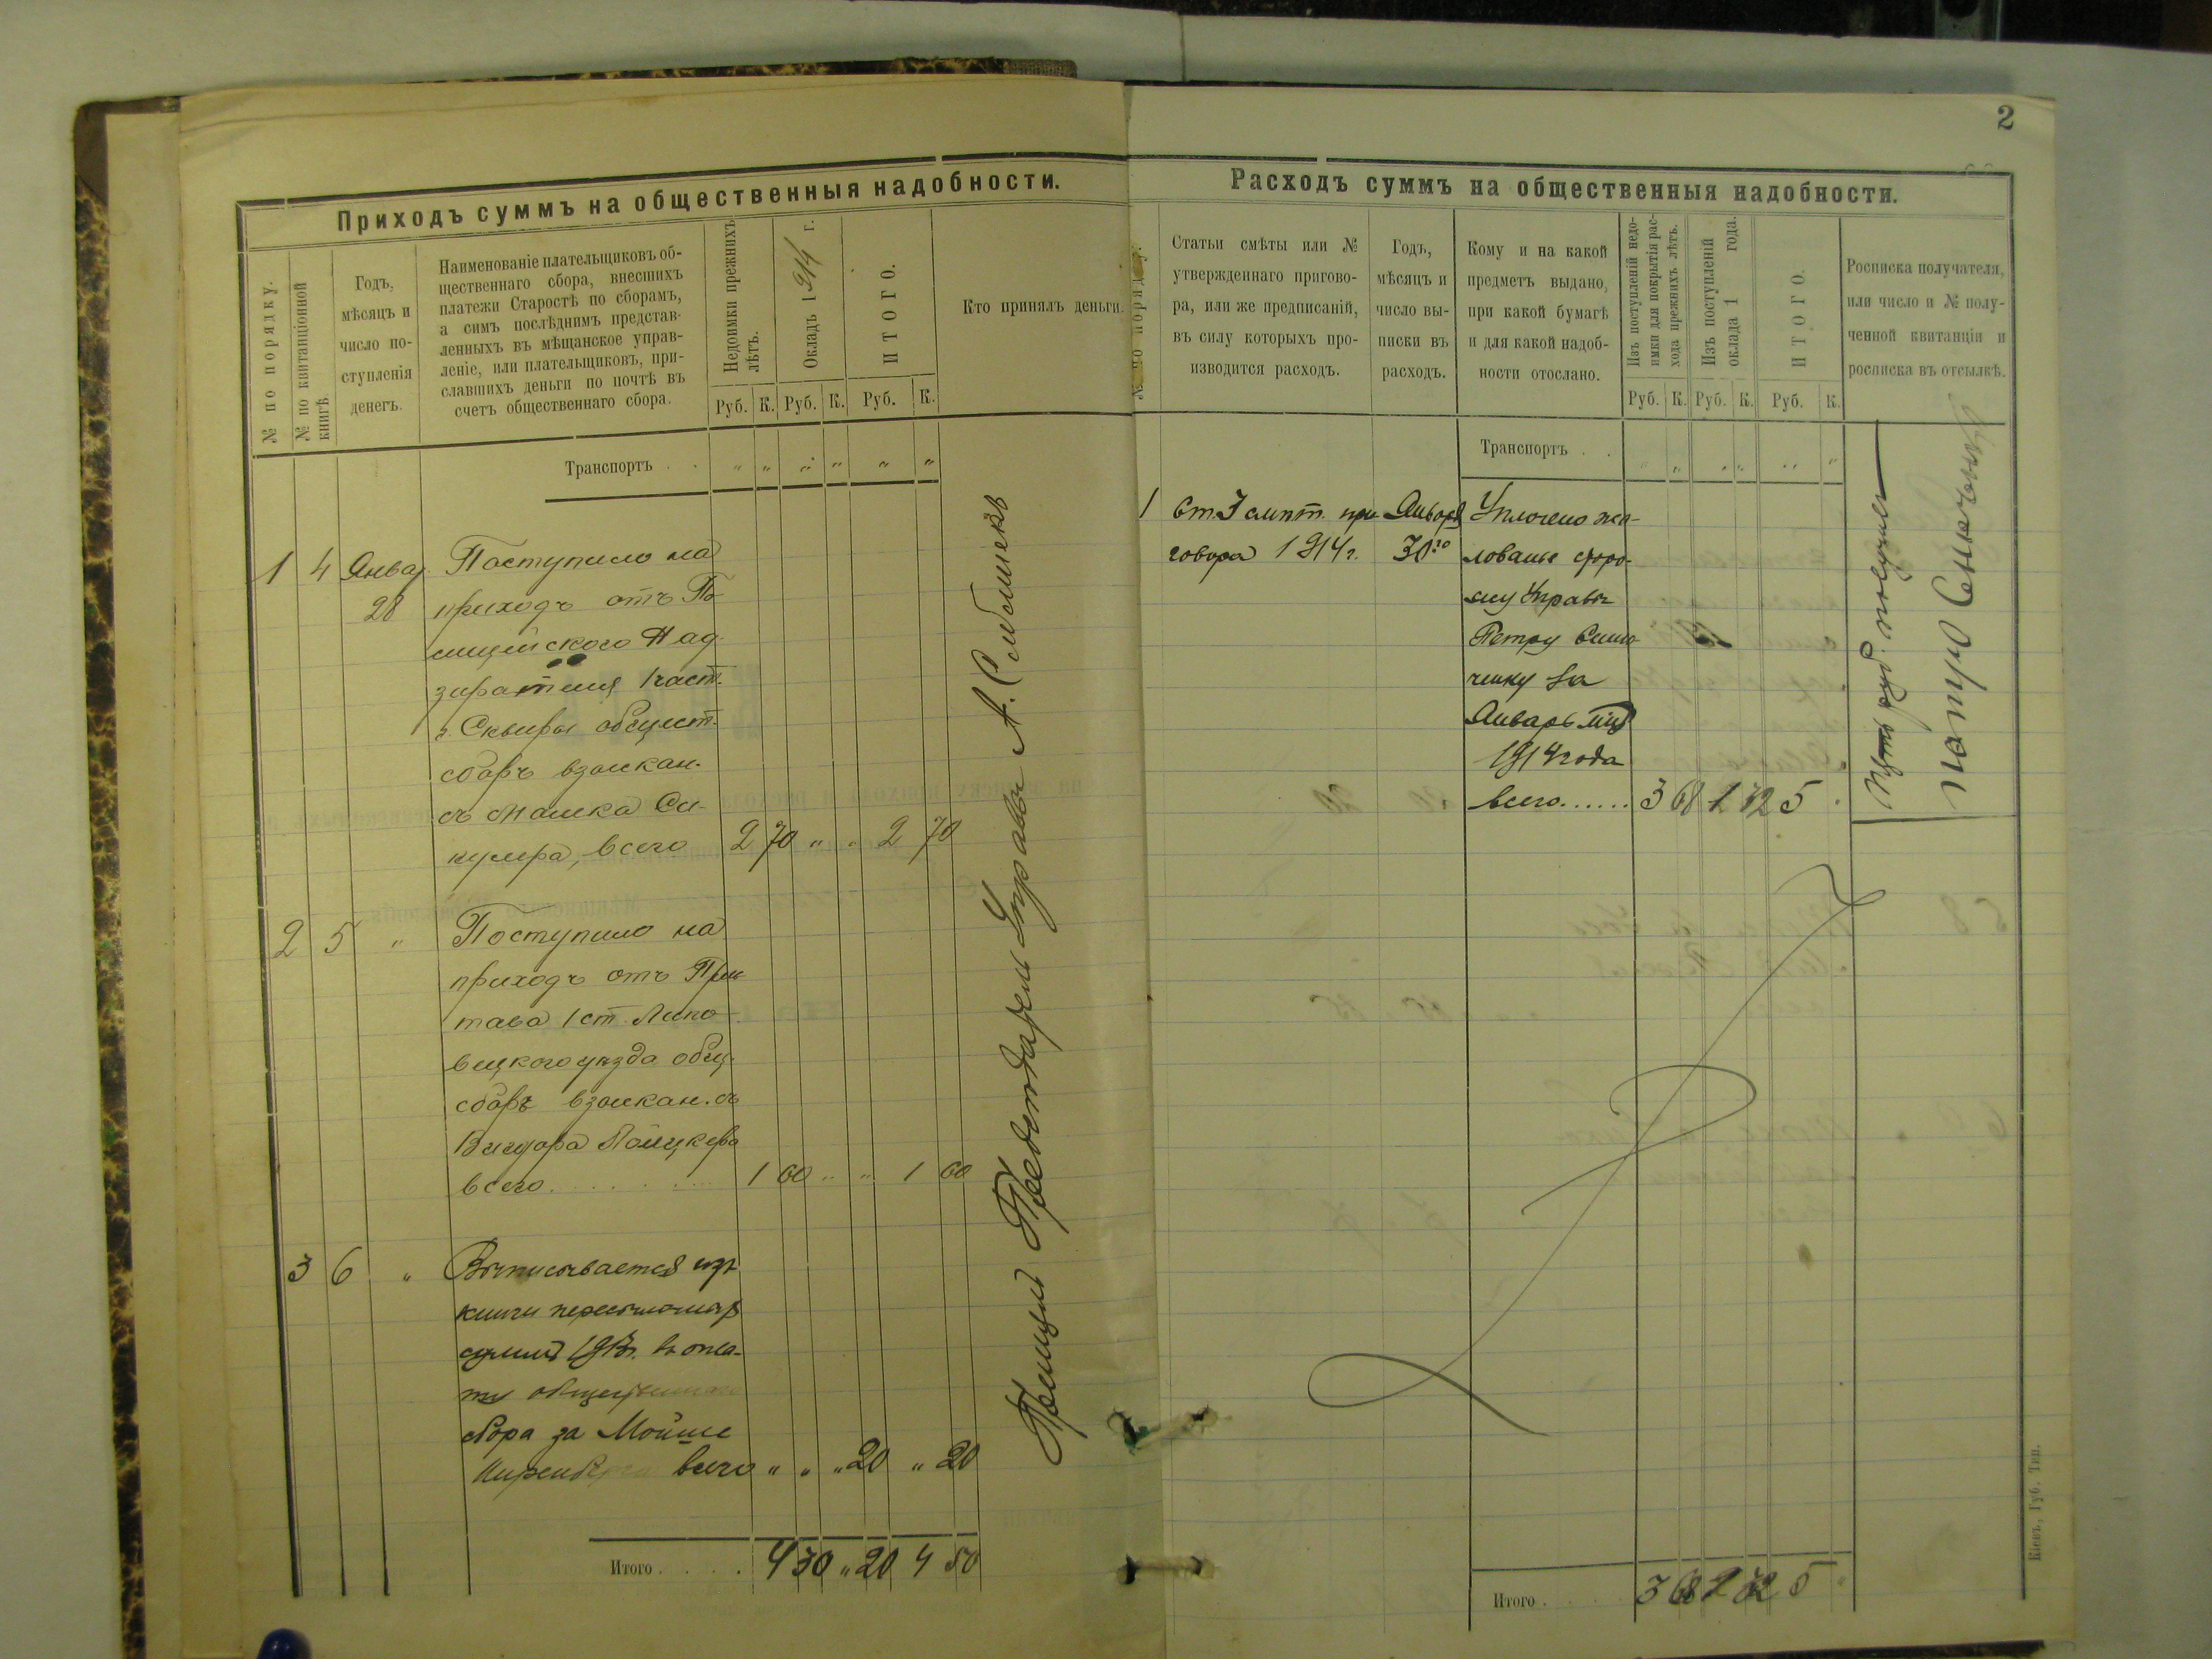 2
Приходъ суммъ на общественныя надобности.
№ по порядку.
№ по квитанціонной
книгѣ.
Годъ,
мѣсяцъ и
число по-
ступленія
денегъ.
Наименованіе плательщиковъ об-
щественнаго сбора, внесшихъ
платежи Старостѣ по сборамъ,
а симъ послѣднимъ представ-
ленныхъ въ мѣщанское управ-
леніе, или плательщиковъ, при-
славшихъ деньги по почтѣ въ
счетъ общественнаго сбора.
Недоимки прежнихъ
лѣтъ.
Окладъ 1914 г.
ИТОГО.
Кто принялъ деньги.
Руб. К. Руб. К. Руб. К.
Транспортъ . . " " " " " "
1 4 Январ Поступило на
28 приходъ отъ По-
лицейского Над-
зирателя 1 част.
г. Сквиры общест.
сборъ взыскан.
съ
всего 2 70 " " 2 70
2 5 " Поступило на
приходъ отъ При-
става 1 ст. Липо-
вецкого уѣзда общ.
сборъ взыскан. съ
всего . . . . . 1 60 " " 1 60
3 6 " Выписывается изъ
книги
суммъ 1913г. въ
сбора за Мойше
всего " " " 20 " 20
Итого . . . . 4 30 " 20 4 50
Принялъ Председатель Управы А.
Расходъ суммъ на общественныя надобности.
№ по порядку.
Статьи смѣты или №
утвержденнаго пригово-
ра, или же предписаній,
въ силу которыхъ про-
изводится расходъ.
Годъ,
мѣсяцъ и
число вы-
писки въ
расходъ.
Кому и на какой
предметъ выдано,
при какой бумагѣ
и для какой надоб-
ности отослано.
Изъ поступленій недо-
имки для покрытія рас-
хода прежнихъ лѣтъ.
Изъ поступленій
оклада 1 года.
ИТОГО.
Росписка получателя,
или число и № полу-
ченной квитанціи и
росписка въ отсылкѣ.
Руб. К. Руб. К. Руб. К.
Транспортъ . . " " " " " "
1 Ст. 3 смѣт. при- Января Уплочено жа-
говора 1914 г. 30го лованье
Управы
Петру
за
Январь мцъ
1914 года
всего...... 3 68 1 32 5 "
Пять руб. получилъ
Петръ
Итого . 3 68 1 32 5 "
Кіевъ, Губ. Тип.